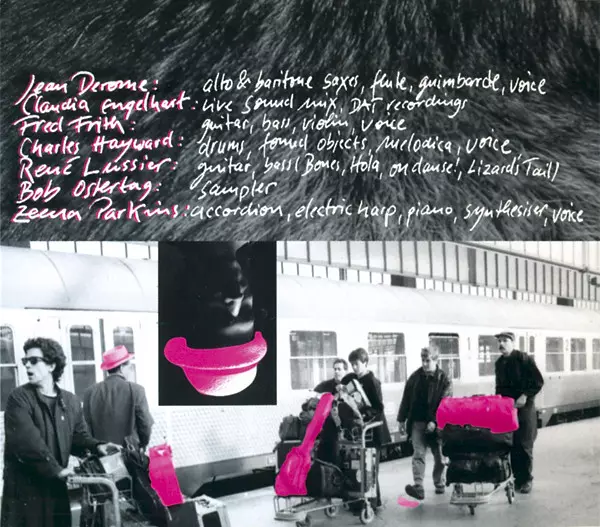 Jean Derome: alto & baritone saxes, flute, guimbarde, voice
Claudia Engelhart: live sound mix, DAT recordings
Fred Frith: guitar, bass, violin, voice
Charles Hayward: drums, found objects, melodica, voice
René Lussier: guitar, bass (Bones, Hola, on danse!, Lizard's Tail)
Bob Ostertag: sampler
Zeena Parkins: accordion, electric harp, piano, synthesiser, voice